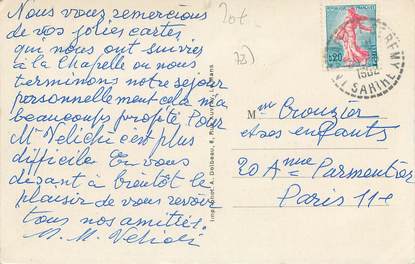 Nous vous remercions
de vos jolies cartes
qui nous ont suivies
à la Chapelle ou nous
terminons notre séjour
personnellement cela m'a
beaucoup profité. Pour
Mr Velichi c'est plus
difficile. En vous
disant à bientôt le
plaisir de vous revoir
tous nos amitiés.
M. M. Velichi
20t
0,20
1962
SARTHE
Mme Crouzier
et ses enfants
20 Anue Parmentier
Paris 11e